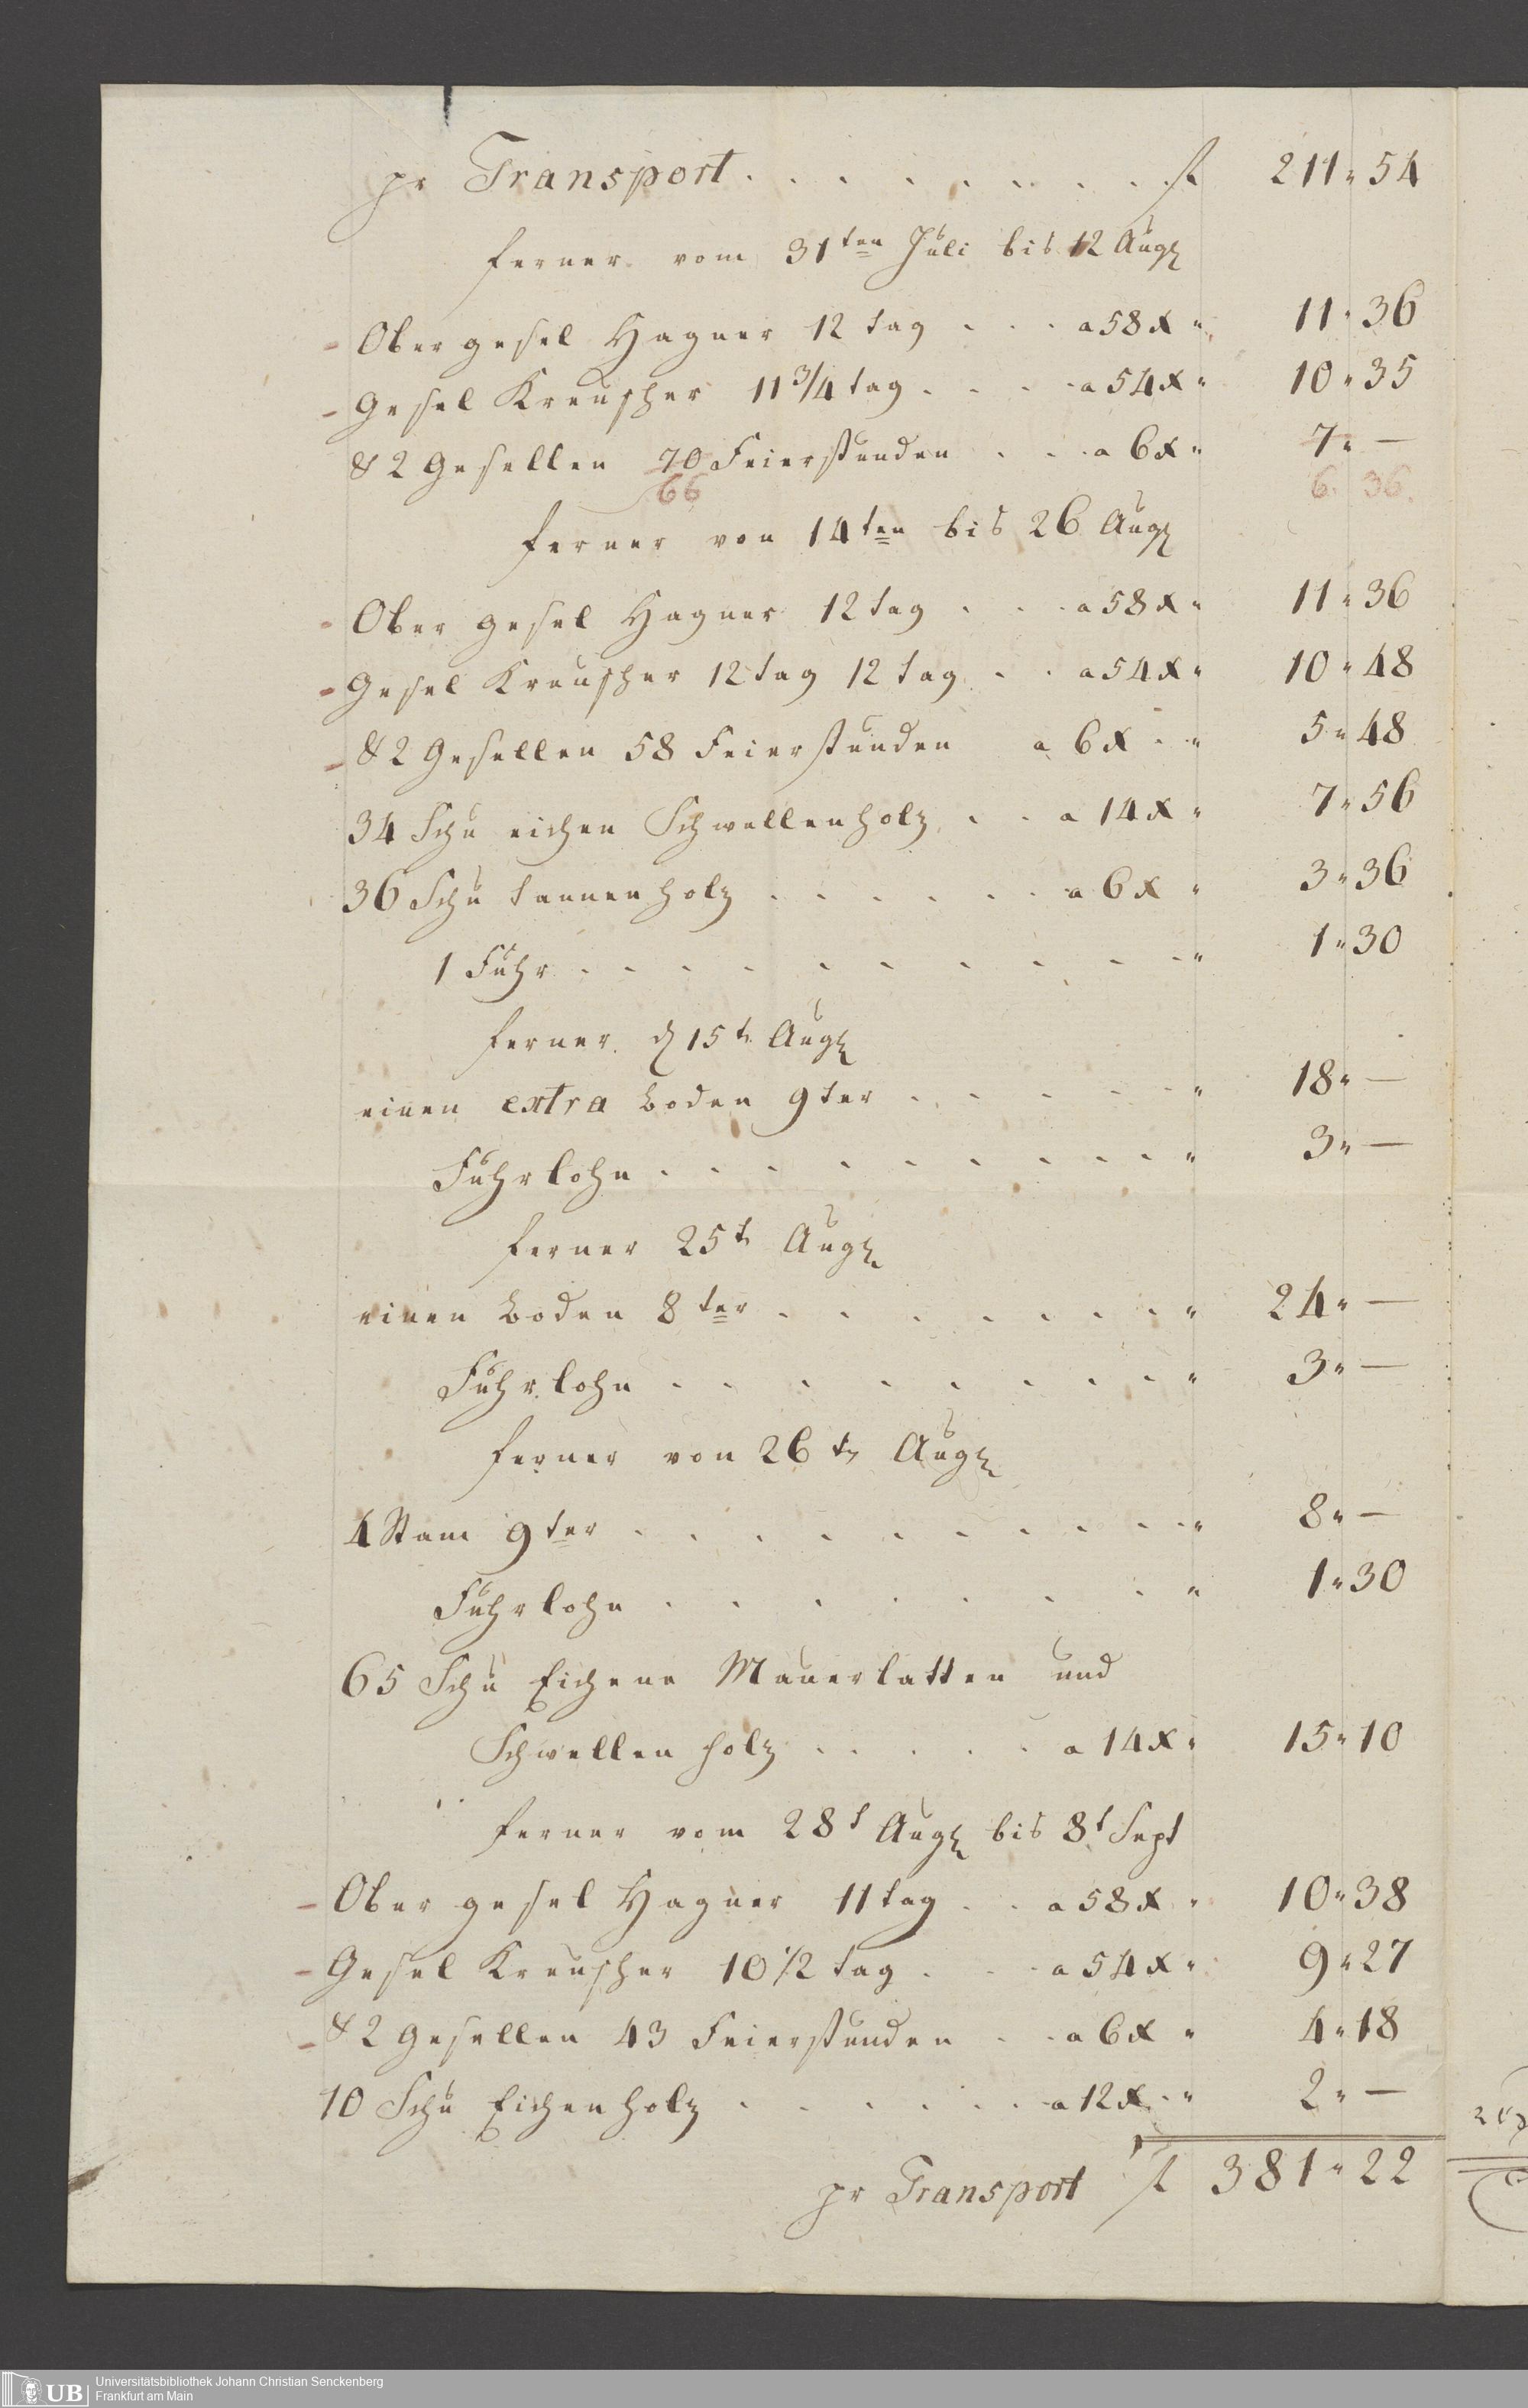 pr Transport . . . . . . . . fl 211 " 54
ferner vom 31ten Juli bis 12 Aug
Ober gesel Hagner 12 tag . . . a 58 x " 11 " 36
Gesel Kreuscher 11 3/4 tag . . . . a 54 x " 10 " 35
& 2 Gesellen 70 Feierstunden . . . a 6 x " 7 " —
66 6. 36.
ferner von 14ten bis 26 Aug
Ober gesel Hagner 12 tag . . . a 58 x " 11 " 36
Gesel Kreuscher 12 tag 12 tag . . a 54 x " 10 " 48
& 2 Gesellen 58 Feierstunden a 6 x . " 5 " 48
34 Schu eichen Schwellenholz . . a 14 x " 7 " 56
36 Schu tannenholz . . . . . . a 6 x " 3 " 36
1 Fuhr . . . . . . . . . . " 1 " 30
ferner d 15t Aug
einen extra Boden 9ter . . . . . . " 18 " —
Fuhrlohn . . . . . . . . . " 3 " —
ferner 25t Aug
einen Boden 8ter . . . . . . . " 24 " —
Fuhrlohn . . . . . . . . . " 3 " —
ferner von 26t Aug
4 Stam 9ter . . . . . . . . . " 8 " —
Fuhrlohn . . . . . . . . " 1 " 30
65 Schu Eichene Mauerlatten und
Schwellen holz . . . . . a 14 x " 15 " 10
ferner vom 28t Aug bis 8t Sept
Ober gesel Hagner 11 tag . . a 58 x " 10 " 38
Gesel Kreuscher 10 1/2 tag . . . a 54 x " 9 " 27
& 2 Gesellen 43 Feierstunden . . a 6 x " 4 " 18
10 Schu Eichenholz . . . . . . a 12 x . " 2 " —
pr Transport fl 381 " 22
UB
Universitätsbibliothek Johann Christian Senckenberg
Frankfurt am Main